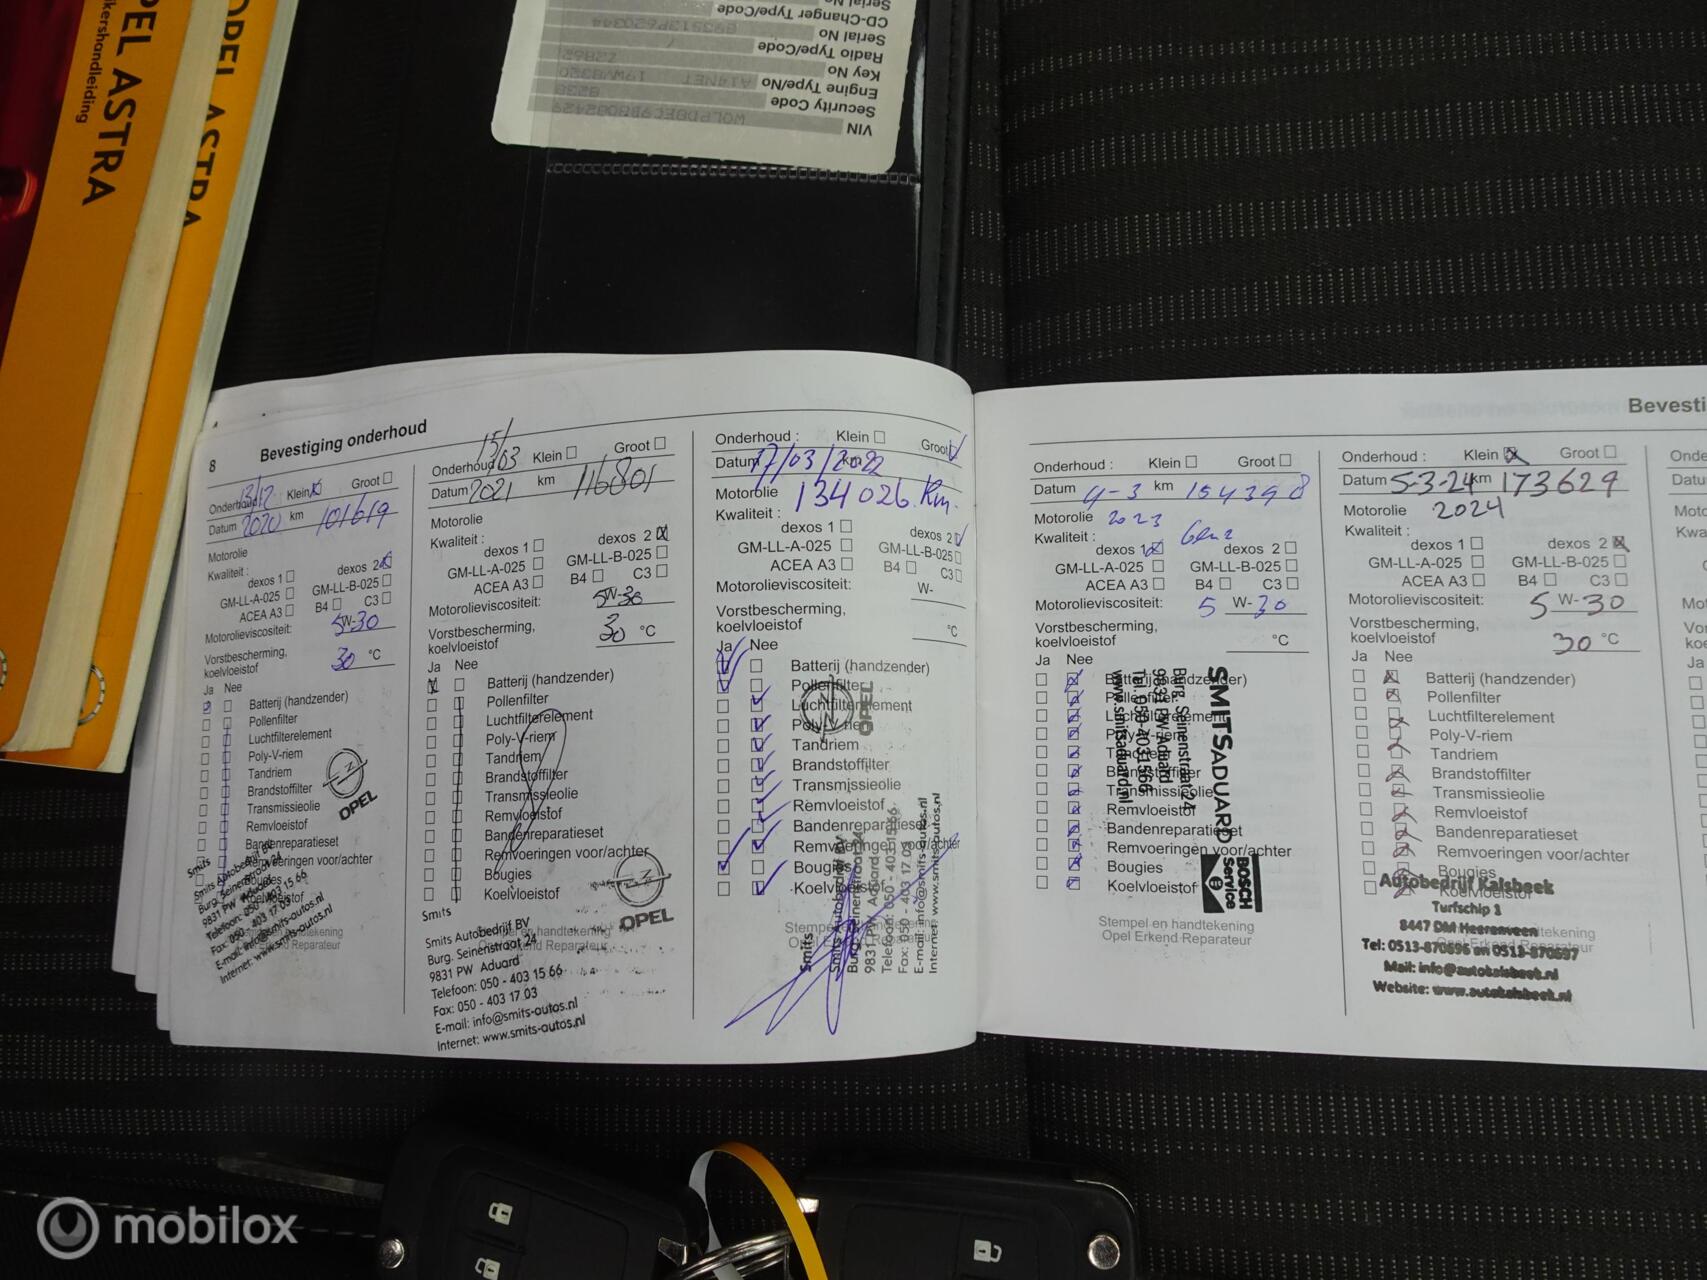 OPEL ASTRA
kershandleiding
OPEL ASTRA
CD-Changer Type/Code
Serial No
Radio Type/Code
Key No
Engine Type/No
Security Code
VIN
A14NET 19WV8320
8238
8
Bevestiging onderhoud
Onderhoud: Klein Groot
13/12
Datum 2020 km 101619
Motorolie
Kwaliteit: dexos 1 dexos 2
GM-LL-A-025 GM-LL-B-025
ACEA A3 B4 C3
Motorolieviscositeit: 5W-30
Vorstbescherming,
koelvloeistof 30 °C
Ja Nee
Batterij (handzender)
Pollenfilter
Luchtfilterelement
Poly-V-riem
Tandriem
Brandstoffilter
Transmissieolie
Remvloeistof
Bandenreparatieset
Remvoeringen voor/achter
Bougies
Koelvloeistof
OPEL
Smits
Smits Autobedrijf BV
Burg. Seinenstraat 24
9831 PW Aduard
Telefoon: 050 - 403 15 66
Fax: 050 - 403 17 03
E-mail: info@smits-autos.nl
Internet: www.smits-autos.nl
Onderhoud Klein Groot
15/03
Datum 2021 km 116801
Motorolie
Kwaliteit: dexos 1 dexos 2
GM-LL-A-025 GM-LL-B-025
ACEA A3 B4 C3
Motorolieviscositeit: 5W-30
Vorstbescherming,
koelvloeistof 30 °C
Ja Nee
Batterij (handzender)
Pollenfilter
Luchtfilterelement
Poly-V-riem
Tandriem
Brandstoffilter
Transmissieolie
Remvloeistof
Bandenreparatieset
Remvoeringen voor/achter
Bougies
Koelvloeistof
OPEL
Smits
Smits Autobedrijf BV
Burg. Seinenstraat 24
9831 PW Aduard
Telefoon: 050 - 403 15 66
Fax: 050 - 403 17 03
E-mail: info@smits-autos.nl
Internet: www.smits-autos.nl
Stempel en handtekening
Opel Erkend Reparateur
Onderhoud : Klein Groot
Datum 17/03/2022 km
Motorolie 134026 km.
Kwaliteit :
dexos 1 dexos 2
GM-LL-A-025 GM-LL-B-025
ACEA A3 B4 C3
Motorolieviscositeit: W-
Vorstbescherming,
koelvloeistof °C
Ja Nee
Batterij (handzender)
Pollenfilter
Luchtfilterelement
Poly-V-riem
Tandriem
Brandstoffilter
Transmissieolie
Remvloeistof
Bandenreparatieset
Remvoeringen voor/achter
Bougies
Koelvloeistof
OPEL
Stempel en handtekening
Opel Erkend Reparateur
Smits
Smits Autobedrijf BV
Burg. Seinenstraat 24
9831 PW Aduard
Telefoon: 050 - 403 15 66
Fax: 050 - 403 17 03
E-mail: info@smits-autos.nl
Internet: www.smits-autos.nl
Bevesti
Onderhoud : Klein Groot
Datum 4-3 km 154398
Motorolie 2023
Kwaliteit : Gen 2
dexos 1 dexos 2
GM-LL-A-025 GM-LL-B-025
ACEA A3 B4 C3
Motorolieviscositeit: 5 W- 30
Vorstbescherming,
koelvloeistof °C
Ja Nee
Batterij (handzender)
Pollenfilter
Luchtfilterelement
Poly-V-riem
Tandriem
Brandstoffilter
Transmissieolie
Remvloeistof
Bandenreparatieset
Remvoeringen voor/achter
Bougies
Koelvloeistof
SMITSADUARD
Burg. Seinenstraat 24
9831 PW Aduard
Tel. 050-4031566
www.smitsaduard.nl
BOSCH
Service
Stempel en handtekening
Opel Erkend Reparateur
Onderhoud : Klein Groot
Datum 5-3-24 km 173629
Motorolie 2024
Kwaliteit :
dexos 1 dexos 2
GM-LL-A-025 GM-LL-B-025
ACEA A3 B4 C3
Motorolieviscositeit: 5 W- 30
Vorstbescherming,
koelvloeistof 30 °C
Ja Nee
Batterij (handzender)
Pollenfilter
Luchtfilterelement
Poly-V-riem
Tandriem
Brandstoffilter
Transmissieolie
Remvloeistof
Bandenreparatieset
Remvoeringen voor/achter
Bougies
Koelvloeistof
Autobedrijf Kalsbeek
Turfschip 1
8447 DM Heerenveen
Tel: 0513-870696 en 0513-870697
Mail: info@autokalsbeek.nl
Website: www.autokalsbeek.nl
mobilox